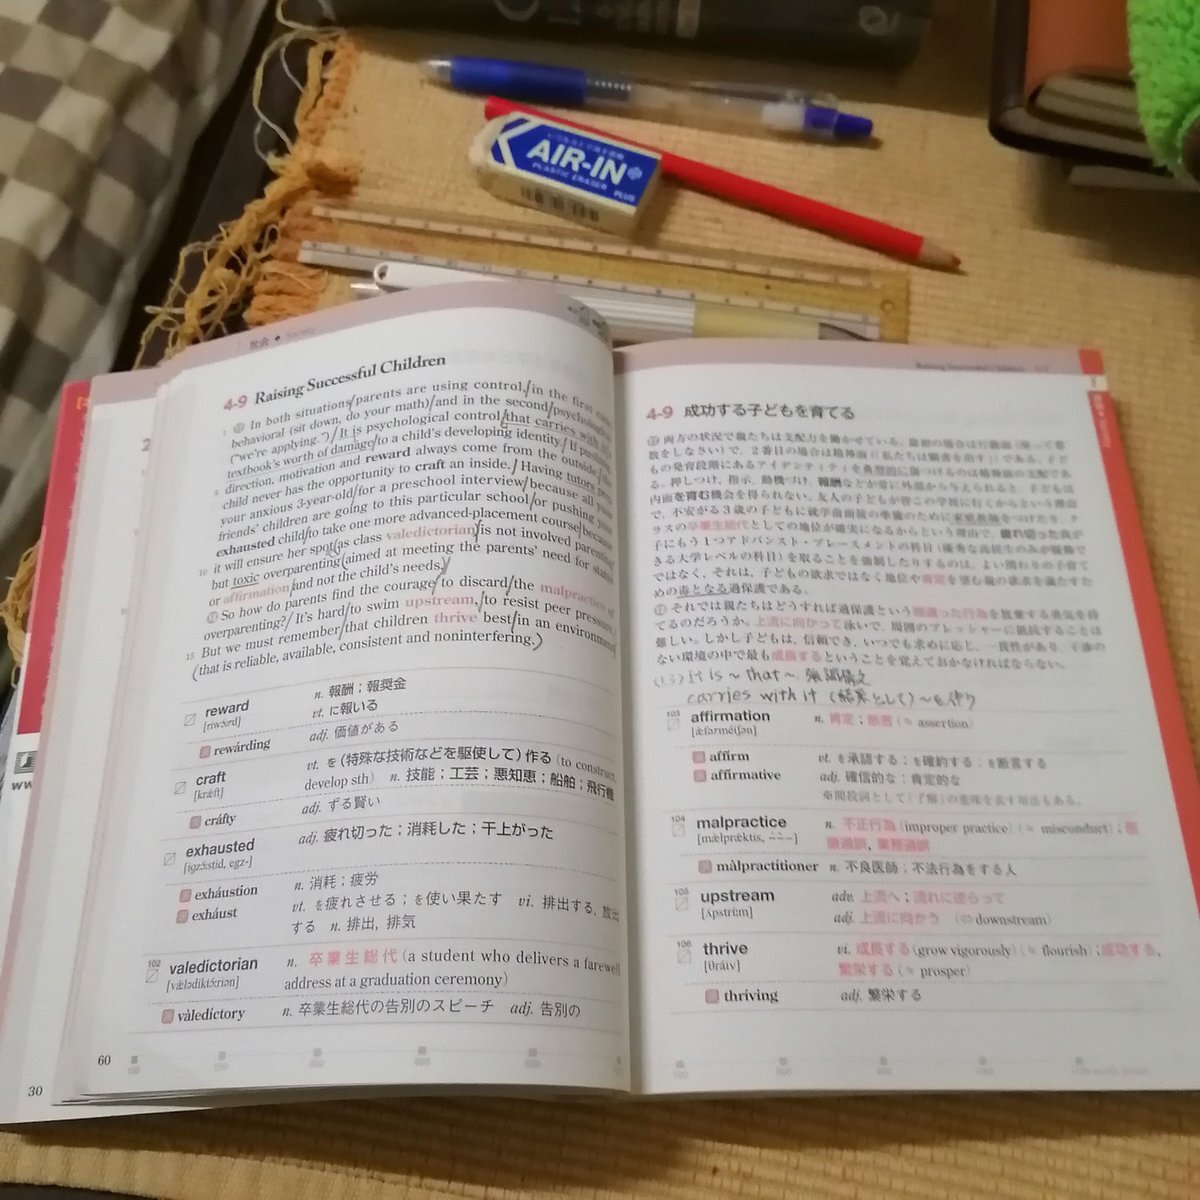 AIR-IN
PLASTIC ERASER PLUS
社会 ◆ Society
4-9 Raising Successful Children
In both situations/parents are using control,/in the first case
behavioral (sit down, do your math)/and in the second/psychological
("we're applying.")/It is psychological control/that carries with it
textbook's worth of damage/to a child's developing identity./If pushing,
direction, motivation and reward always come from the outside/the
child never has the opportunity to craft an inside./Having tutors
your anxious 3-year-old/for a preschool interview/because all your
friends' children are going to this particular school/or pushing your
exhausted child/to take one more advanced-placement course/because
it will ensure her spot/as class valedictorian/is not involved
but toxic overparenting/aimed at meeting the parents' need for status
or affirmation/and not the child's needs./
So how do parents find the courage/to discard/the malpractice of
overparenting?/It's hard/to swim upstream,/to resist peer pressure.
But we must remember/that children thrive best/in an environment
(that is reliable, available, consistent and noninterfering.)
reward n. 報酬；報奨金
[riwɔ́ːrd] vt. に報いる
rewárding adj. 価値がある
craft vt. を（特殊な技術などを駆使して）作る (to construct,
[kræft] develop sth) n. 技能；工芸；悪知恵；船舶；飛行機
cráfty adj. ずる賢い
exhausted adj. 疲れ切った；消耗した；干上がった
[igzɔ́ːstid, egz-]
exháustion n. 消耗；疲労
exháust vt. を疲れさせる；を使い果たす vi. 排出する，放出
する n. 排出，排気
102
valedictorian n. 卒業生総代 (a student who delivers a farewell
[vælədiktɔ́ːriən] address at a graduation ceremony)
vàledíctory n. 卒業生総代の告別のスピーチ adj. 告別の
60
30
Raising Successful Children
4-9 成功する子どもを育てる
両方の状況で親たちは支配力を働かせている。最初の場合は行動面（座って算
数をしなさい）で、2番目の場合は精神面（「私たちは願書を出す」）である。子ど
もの発育段階にあるアイデンティティを典型的に傷つけるのは精神面の支配であ
る。押しつけ、指示、動機づけ、報酬などが常に外部から与えられると、子どもは
内面を育む機会を得られない。友人の子どもが皆この学校に行くからという理由
で、不安がる3歳の子どもに就学前面接の準備のために家庭教師をつけたり、ク
ラスの卒業生総代としての地位が確実になるからという理由で、疲れ切った我が
子にもう1つアドバンスト・プレースメントの科目（優秀な高校生のみが履修で
きる大学レベルの科目）を取ることを強制したりするのは、よい関わりの子育て
ではなく、それは、子どもの欲求ではなく地位や肯定を望む親の欲求を満たすた
めの毒となる過保護である。
それでは親たちはどうすれば過保護という間違った行為を放棄する勇気を持
てるのだろうか。上流に向かって泳いで、周囲のプレッシャーに抵抗することは
難しい。しかし子どもは、信頼でき、いつでも求めに応じ、一貫性があり、干渉の
ない環境の中で最も成長するということを覚えておかなければならない。
it is ~ that ~. 強調構文
carries with it (結果として)~を伴う
103
affirmation n. 肯定；断言 (≒ assertion)
[æ̀fərméiʃən]
affírm vt. を承認する；を確約する；を断言する
affírmative adj. 確信的な；肯定的な
※間投詞として「了解」の意味を表す用法もある。
104
malpractice n. 不正行為 (improper practice) (≒ misconduct)；医
[mælpræktis] 療過誤，業務過誤
màlpractítioner n. 不良医師；不法行為をする人
105
upstream adv. 上流へ；流れに逆らって
[ʌ́pstríːm] adj. 上流に向かう (⇔ downstream)
106
thrive vi. 成長する (grow vigorously) (≒ flourish)；成功する，
[θráiv] 繁栄する (≒ prosper)
thriving adj. 繁栄する